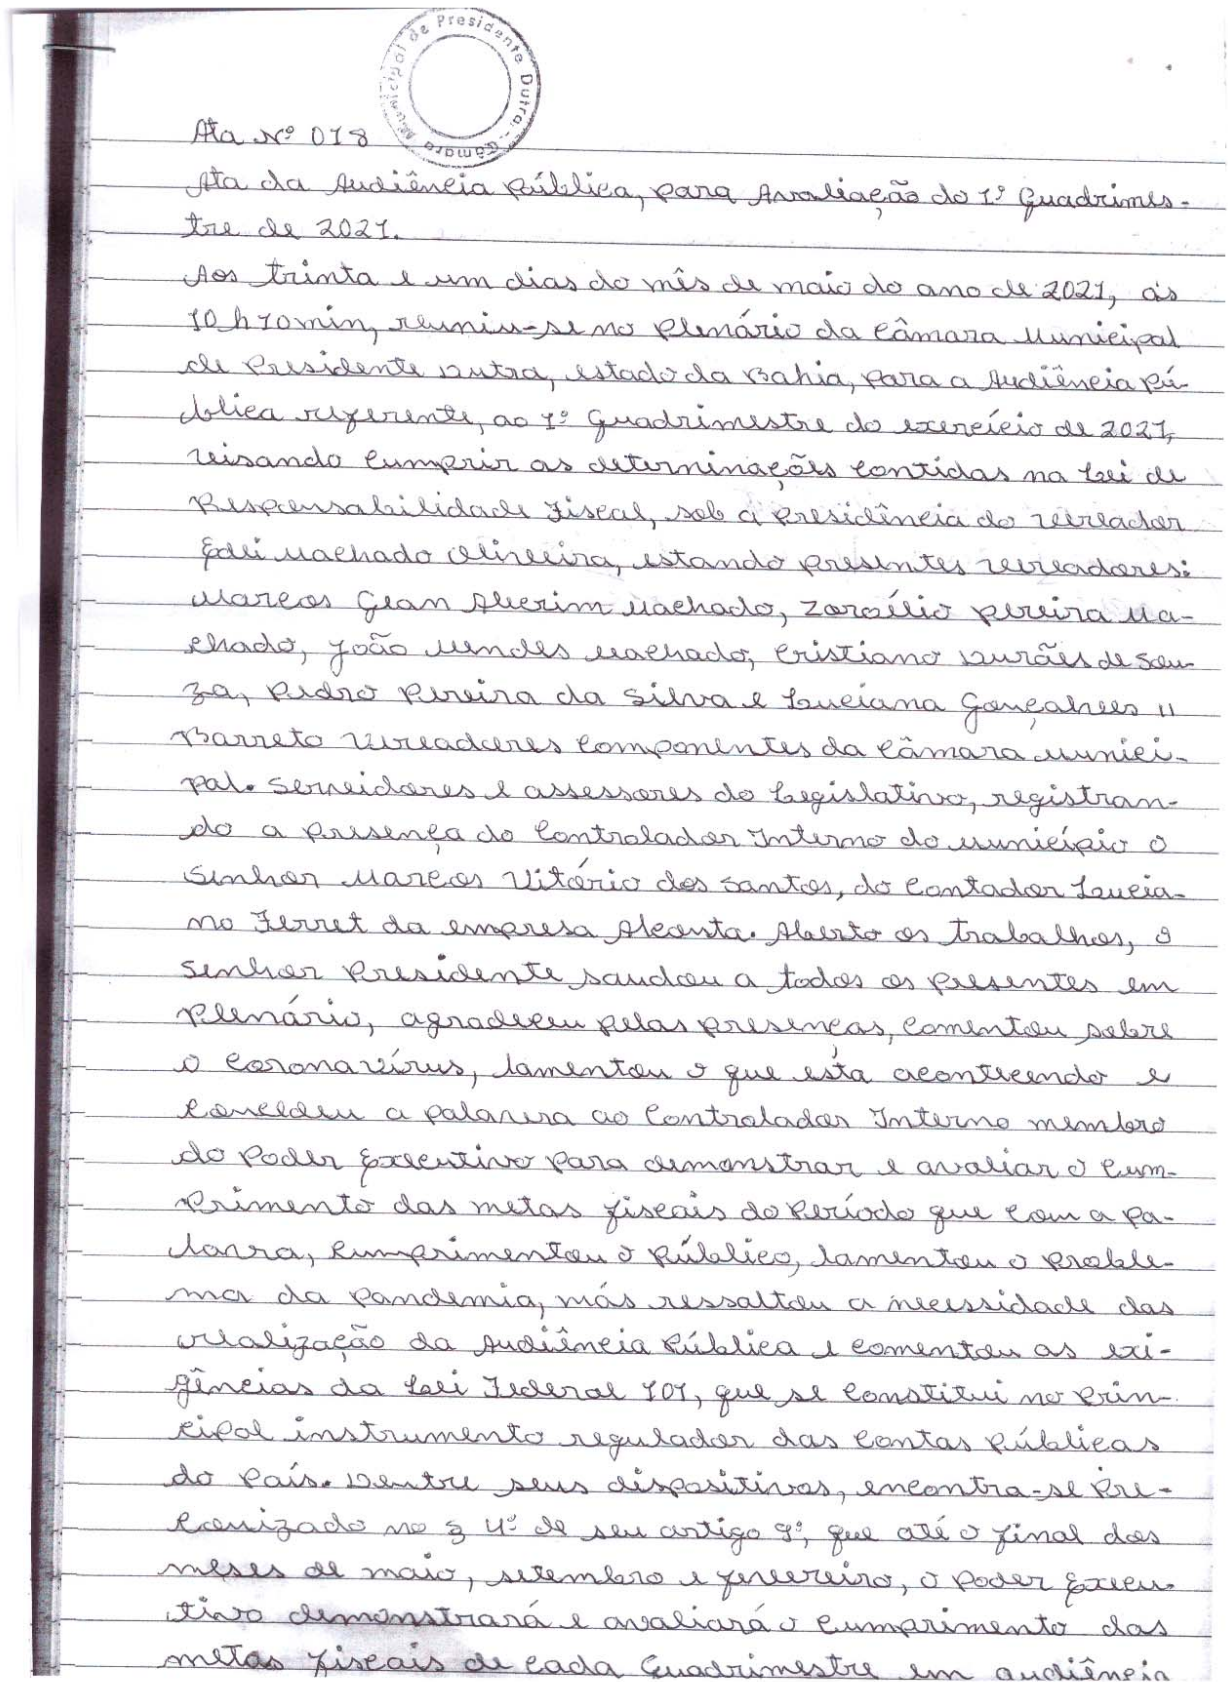 Câmara Municipal de Presidente Dutra.-
Ata Nº 018
Ata da Audiência Pública, para Avaliação do 1º Quadrimes-
tre de 2021.
Aos trinta e um dias do mês de maio do ano de 2021, às
10h10min, reuniu-se no Plenário da Câmara Municipal
de Presidente Dutra, estado da Bahia, para a Audiência Pú-
blica referente, ao 1º Quadrimestre do exercício de 2021,
visando cumprir as determinações contidas na Lei de
Responsabilidade Fiscal, sob a presidência do vereador
Edei Machado Oliveira, estando presentes vereadores:
Marcos Gean Alverim Machado, Zoroílio Pereira Ma-
chado, João Mendes Machado, Cristiano Durães de Sou-
za, Pedro Pereira da Silva e Luciana Gonçalves "
Barreto Vereadores componentes da Câmara Munici-
pal. Servidores e assessores do Legislativo, registran-
do a presença do Controlador Interno do Município o
Senhor Marcos Vitório dos Santos, do Contador Lucia-
no Ferret da empresa Alconta. Aberto os trabalhos, o
Senhor Presidente saudou a todos os presentes em
Plenário, agradeceu pelas presenças, comentou sobre
o Coronavírus, lamentou o que está acontecendo e
concedeu a palavra ao Controlador Interno membro
do Poder Executivo para demonstrar e avaliar o cum-
primento das metas fiscais do período que com a pa-
lavra, cumprimentou o público, lamentou o proble-
ma da pandemia, más ressaltou a necessidade das
realização da Audiência Pública e comentou as exi-
gências da Lei Federal 101, que se constitui no prin-
cipal instrumento regulador das contas públicas
do País. Dentre seus dispositivos, encontra-se pre-
conizado no § 4º de seu artigo 9º, que até o final dos
meses de maio, setembro e fevereiro, o Poder Execu-
tivo demonstrará e avaliará o cumprimento das
metas fiscais de cada Quadrimestre em audiência